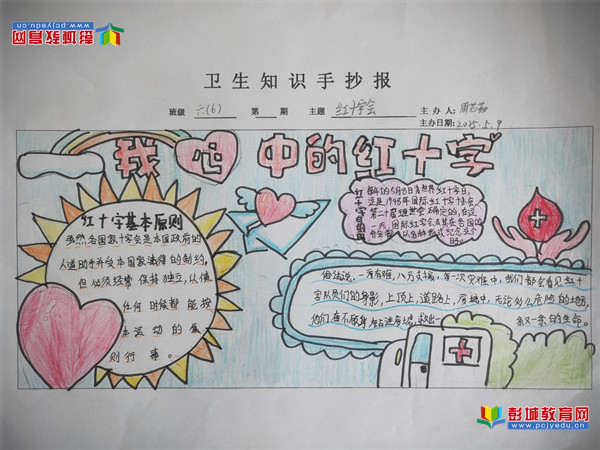 彭城教育网
www.pcjyedu.cn
卫生知识手抄报
班级 六(6) 第 期 主题 红十字会 主办人:周芷茹
主办日期:2015.5.9
我心中的红十字
红十字基本原则
虽然各国红十字会是本国政府的
人道助手并受本国家法律的制约,
但必须经常保持独立,以便
任何时候都能按
本运动的原
则行事。
红十字日
每年的5月8日是世界红十字日,
这是1948年国际红十字协会,
第二十届理事会确定的,在这
一天国际红十字会及其在各国的
分会都以各种形式纪念这个
日子。
俗话说,一方有难,八方支援,每一次灾难中,我们都会看见红十
字队员们的身影,上顶上,道路上,房墟中,无论多么危险的地方,
他们奋不顾身钻进房墟,救出一 条又一条的生命。
彭城教育网
www.pcjyedu.cn